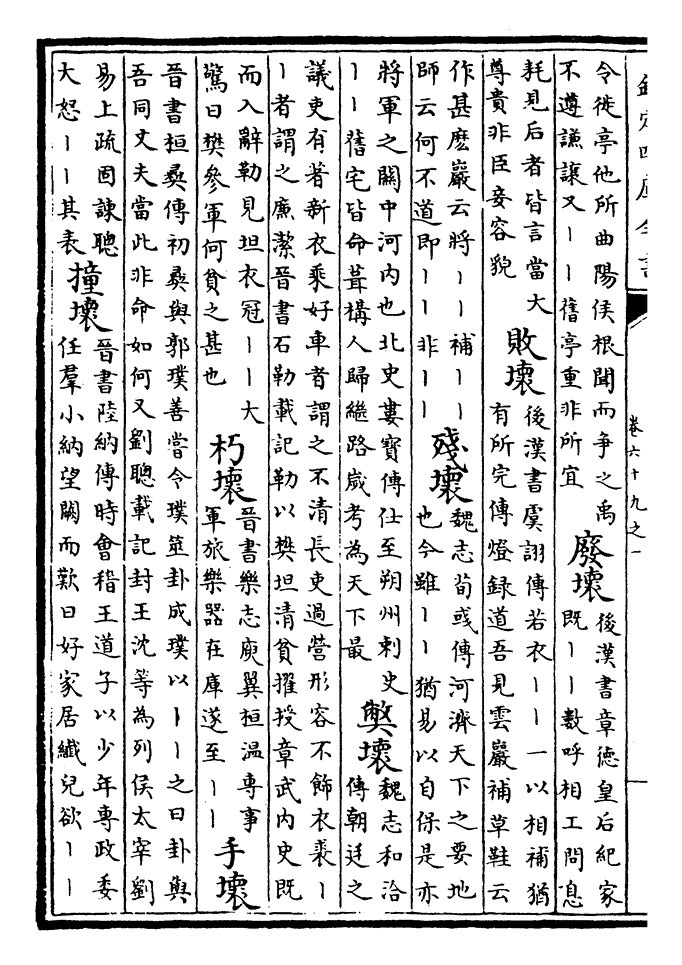 欽定四庫全書
卷六十九之一
令徙亭他所曲陽侯根聞而爭之禹
不遵謙讓又丨丨舊亭重非所宜
廢壞
後漢書章徳皇后紀家
既丨丨數呼相工問息
耗見后者皆言當大
尊貴非臣妾容貌
敗壞
後漢書虞詡傳若衣丨丨一以相補猶
有所完傳燈録道吾見雲巖補草鞋云
作甚麽巖云將丨丨補丨丨
師云何不道即丨丨非丨丨
殘壞
魏志荀彧傳河濟天下之要地
也今雖丨丨猶易以自保是亦
將軍之關中河内也北史婁寶傳仕至朔州刺史
丨丨舊宅皆命葺構人歸繼路嵗考為天下最
弊壞
魏志和洽
傳朝廷之
議吏有著新衣乘好車者謂之不清長吏過營形容不飾衣裘丨
丨者謂之廉潔晉書石勒載記勒以樊坦清貧擢授章武内史既
而入辭勒見坦衣冠丨丨大
驚曰樊參軍何貧之甚也
朽壞
晉書樂志庾翼桓温専事
軍旅樂器在庫遂至丨丨
手壞
晉書桓彞傳初彞與郭璞善嘗令璞筮卦成璞以丨丨之曰卦與
吾同丈夫當此非命如何又劉聰載記封王沈等為列侯太宰劉
易上疏固諫聰
大怒丨丨其表
撞壞
晉書陸納傳時會稽王道子以少年専政委
任羣小納望闕而歎曰好家居纖兒欲丨丨